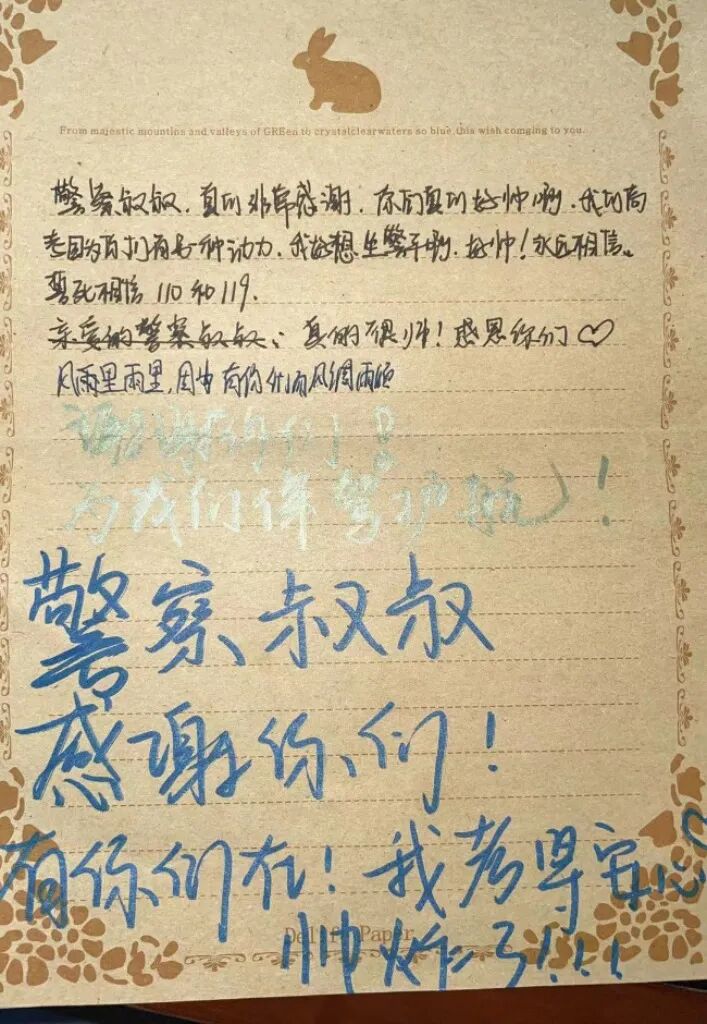 From majestic mountins and valleys of GREen to crystalclearwaters so blue,this wish comging to you.
警察叔叔,真的非常感谢,你们真的好帅啊,我的高
考因为你们有各种动力,我好想坐警车啊,好帅!永远相信。
誓死相信 110 和 119.
亲爱的警察叔叔:真的很帅!感恩你们♡
风雨里雨里,因为有你们而风调雨顺
谢谢你们!
为我们保驾护航!
警察叔叔
感谢你们!
有你们在!我考得安心♡
Deli Paper
帅炸了!!!